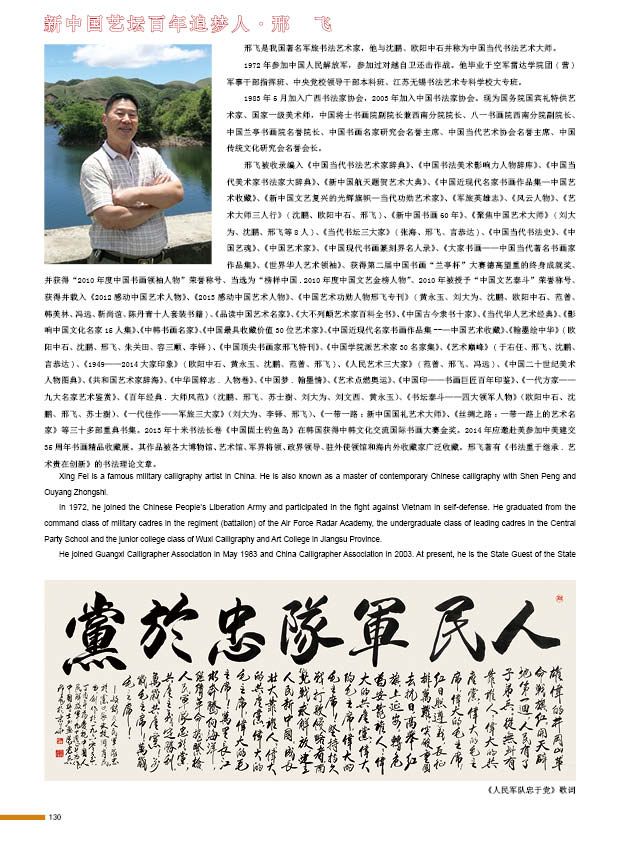 新中国艺坛百年追梦人·邢 飞
邢飞是我国著名军旅书法艺术家，他与沈鹏、欧阳中石并称为中国当代书法艺术大师。
1972 年参加中国人民解放军，参加过对越自卫还击作战。他毕业于空军雷达学院团 ( 营 )
军事干部指挥班、中央党校领导干部本科班、江苏无锡书法艺术专科学校大专班。
1983 年 5 月加入广西书法家协会，2003 年加入中国书法家协会。现为国务院国宾礼特供艺
术家、国家一级美术师，中国将士书画院副院长兼西南分院院长、八一书画院西南分院副院长、
中国兰亭书画院名誉院长、中国书画名家研究会名誉主席、中国当代艺术协会名誉主席、中国
传统文化研究会名誉会长。
邢飞被收录编入《中国当代书法艺术家辞典》、《中国书法美术影响力人物辞库》、《中国当
代美术家书法家大辞典》、《新中国航天题贺艺术大典》、《中国近现代名家书画作品集—中国艺
术收藏》、《新中国文艺复兴的光辉旗帜—当代功勋艺术家》、《军旅英雄志》、《风云人物》、《艺
术大师三人行》( 沈鹏、欧阳中石、邢飞 )、《新中国书画 60 年》、《聚焦中国艺术大师》( 刘大
为、沈鹏、邢飞等 8 人 )、《当代书坛三大家》( 张海、邢飞、言恭达 )、《中国当代书法史》、《中
国艺魂》、《中国艺术家》、《中国现代书画篆刻界名人录》、《大家书画——中国当代著名书画家
作品集》、《世界华人艺术领袖》、获得第二届中国书画 “兰亭杯” 大赛德高望重的终身成就奖、
并获得 “2010 年度中国书画领袖人物” 荣誉称号、当选为 “榜样中国 . 2010 年度中国文艺金榜人物”、2010 年被授予 “中国文艺泰斗” 荣誉称号、
获得并载入《2012 感动中国艺术人物》、《2013 感动中国艺术人物》、《中国艺术功勋人物邢飞专刊》( 黄永玉、刘大为、沈鹏、欧阳中石、范曾、
韩美林、冯远、靳尚谊、陈丹青十人套装书籍 )、《品读中国艺术名家》、《大不列颠艺术家百科全书》、《中国古今隶书十家》、《当代华人艺术经典》、《影
响中国文化名家 16 人集》、《中韩书画名家》、《中国最具收藏价值 30 位艺术家》、《中国近现代名家书画作品集——中国艺术收藏》、《翰墨绘中华》( 欧
阳中石、沈鹏、邢飞、朱关田、容三顺、李铎 )、《中国顶尖书画家邢飞特刊》、《中国学院派艺术家 30 名家集》、《艺术巅峰》( 于右任、邢飞、沈鹏、
言恭达 )、《1949——2014 大家印象》( 欧阳中石、黄永玉、沈鹏、范曾、邢飞 )、《人民艺术三大家》( 范曾、邢飞、冯远 )、《中国二十世纪美术
人物图典》、《共和国艺术家辞海》、《中华国粹志 . 人物卷》、《中国梦 . 翰墨情》、《艺术点燃奥运》、《中国印——书画巨匠百年印鉴》、《一代方家——
九大名家艺术鉴赏》、《百年经典 . 大师风范》( 沈鹏、邢飞、苏士澍、刘大为、刘文西、黄永玉 )、《书坛泰斗——四大领军人物》( 欧阳中石、沈
鹏、邢飞、苏士澍 )、《一代佳作——军旅三大家》( 刘大为、李铎、邢飞 )、《一带一路：新中国国礼艺术大师》、《丝绸之路：一带一路上的艺术名
家》等三十多部重典书集。2013 年十米书法长卷《中国固土钓鱼岛》在韩国获得中韩文化交流国际书画大赛金奖。2014 年应邀赴美参加中美建交
35 周年书画精品收藏展。其作品被各大博物馆、艺术馆、军界将领、政界领导、驻外使领馆和海内外收藏家广泛收藏。邢飞著有《书法重于继承 . 艺
术贵在创新》的书法理论文章。
Xing Fei is a famous military calligraphy artist in China. He is also known as a master of contemporary Chinese calligraphy with Shen Peng and
Ouyang Zhongshi.
In 1972, he joined the Chinese People's Liberation Army and participated in the fight against Vietnam in self-defense. He graduated from the
command class of military cadres in the regiment (battalion) of the Air Force Radar Academy, the undergraduate class of leading cadres in the Central
Party School and the junior college class of Wuxi Calligraphy and Art College in Jiangsu Province.
He joined Guangxi Calligrapher Association in May 1983 and China Calligrapher Association in 2003. At present, he is the State Guest of the State
人民軍隊忠於黨
雄偉的井岡山軍
命戰旗紅開天辟
地第一迴人民有了
子弟兵從無到有
《人民军队忠于党》歌词
130